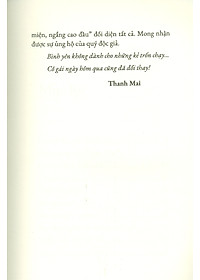 miện, ngẩng cao đầu" đối diện tất cả. Mong nhận
được sự ủng hộ của quý độc giả.
Bình yên không dành cho những kẻ trốn chạy...
Cô gái ngày hôm qua cũng đã đổi thay!
Thanh Mai